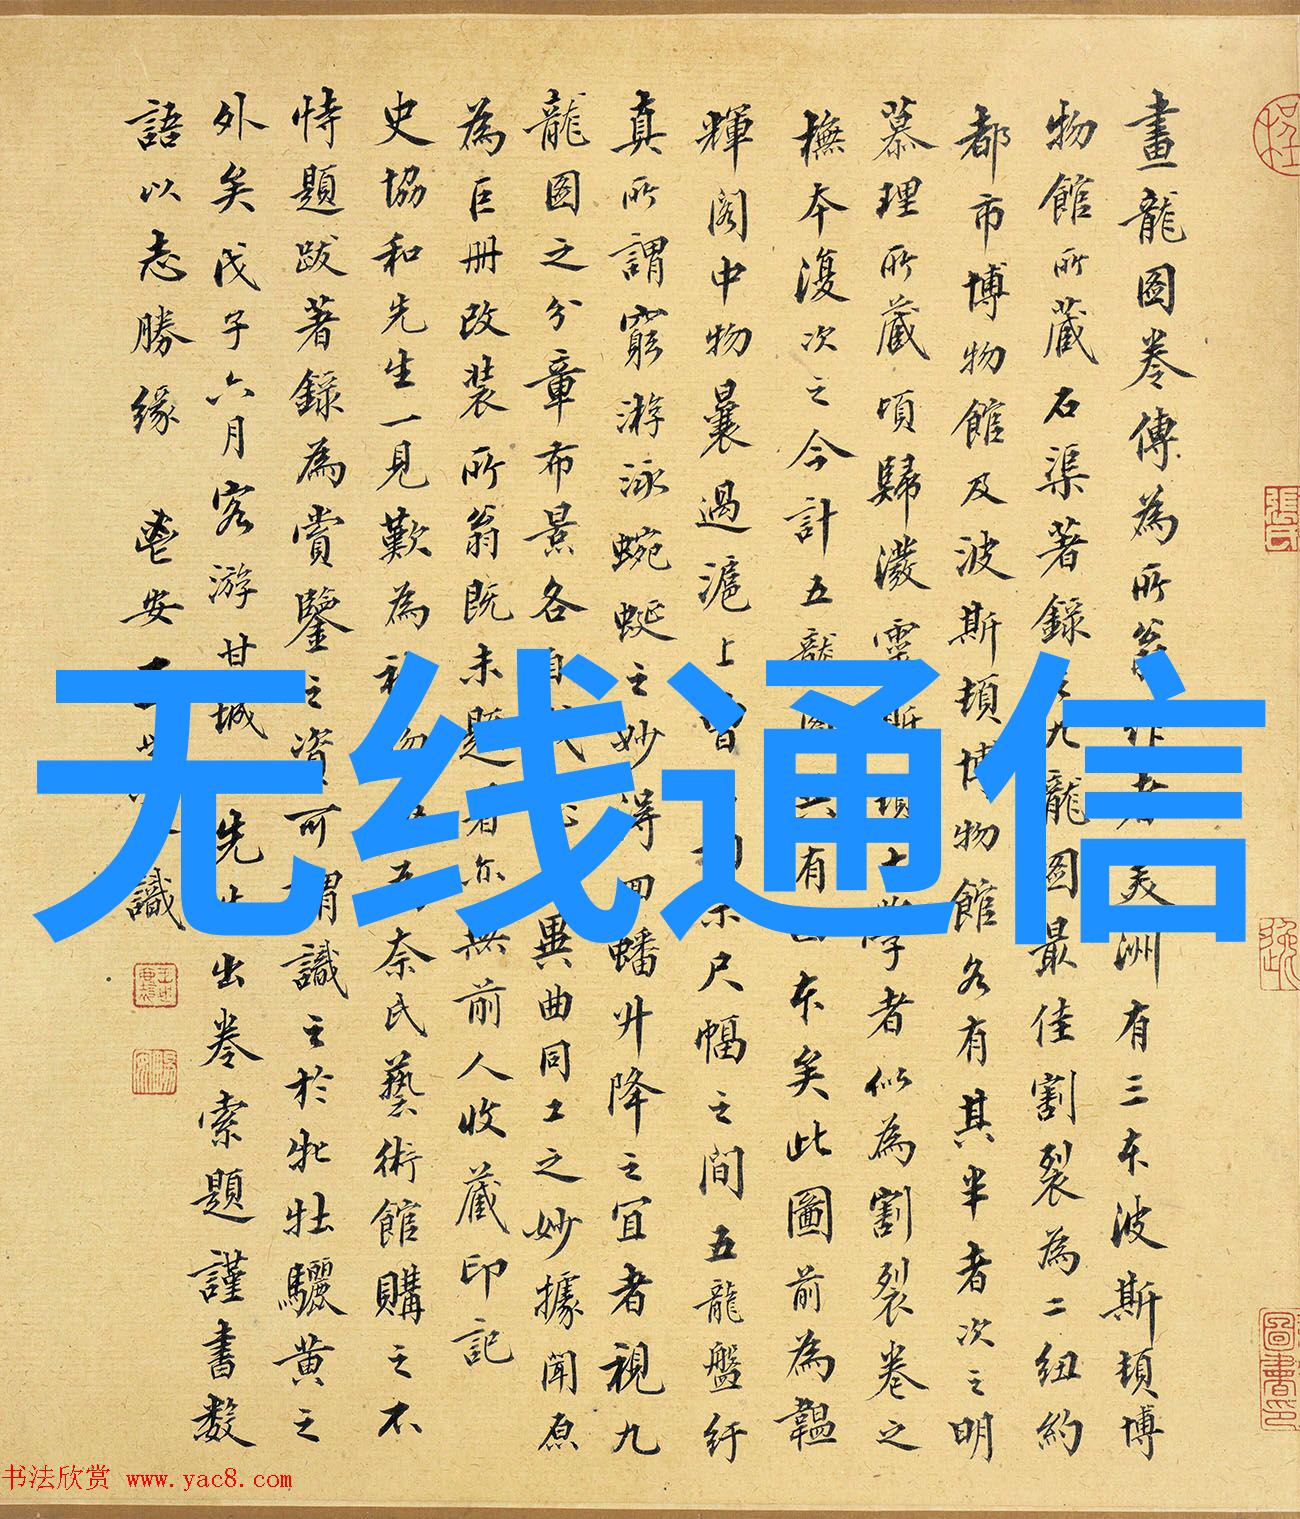 畫龍圖卷傳為所翁作者美洲有三本波斯頓博
物館所藏石渠著錄之九龍圖最佳割裂為二紐約
都市博物館及波斯頓博物館各有其半者次之明
慕理所藏頃歸潑靈斯頓大學者似為割裂卷之
橅本復次之今計五龍圖共有四本矣此圖前為韞
輝閣中物曩過滬上曾尺幅之間五龍盤紆
真所謂窮游泳蜿蜒之妙得回蟠升降之宜者視九
龍圖之分章布景各自異曲同工之妙據聞原
為巨冊改裝所翁既未題著亦無前人收藏印記
史協和先生一見歎為奈氏藝術館購之不
恃題跋著錄為賞鑒之資可謂識之於牝牡驪黃之
外矣戊子六月客游甘城先生出卷索題謹書數
語以志勝緣 鬯安王世識
无线通信
书法欣赏 www.yac8.com